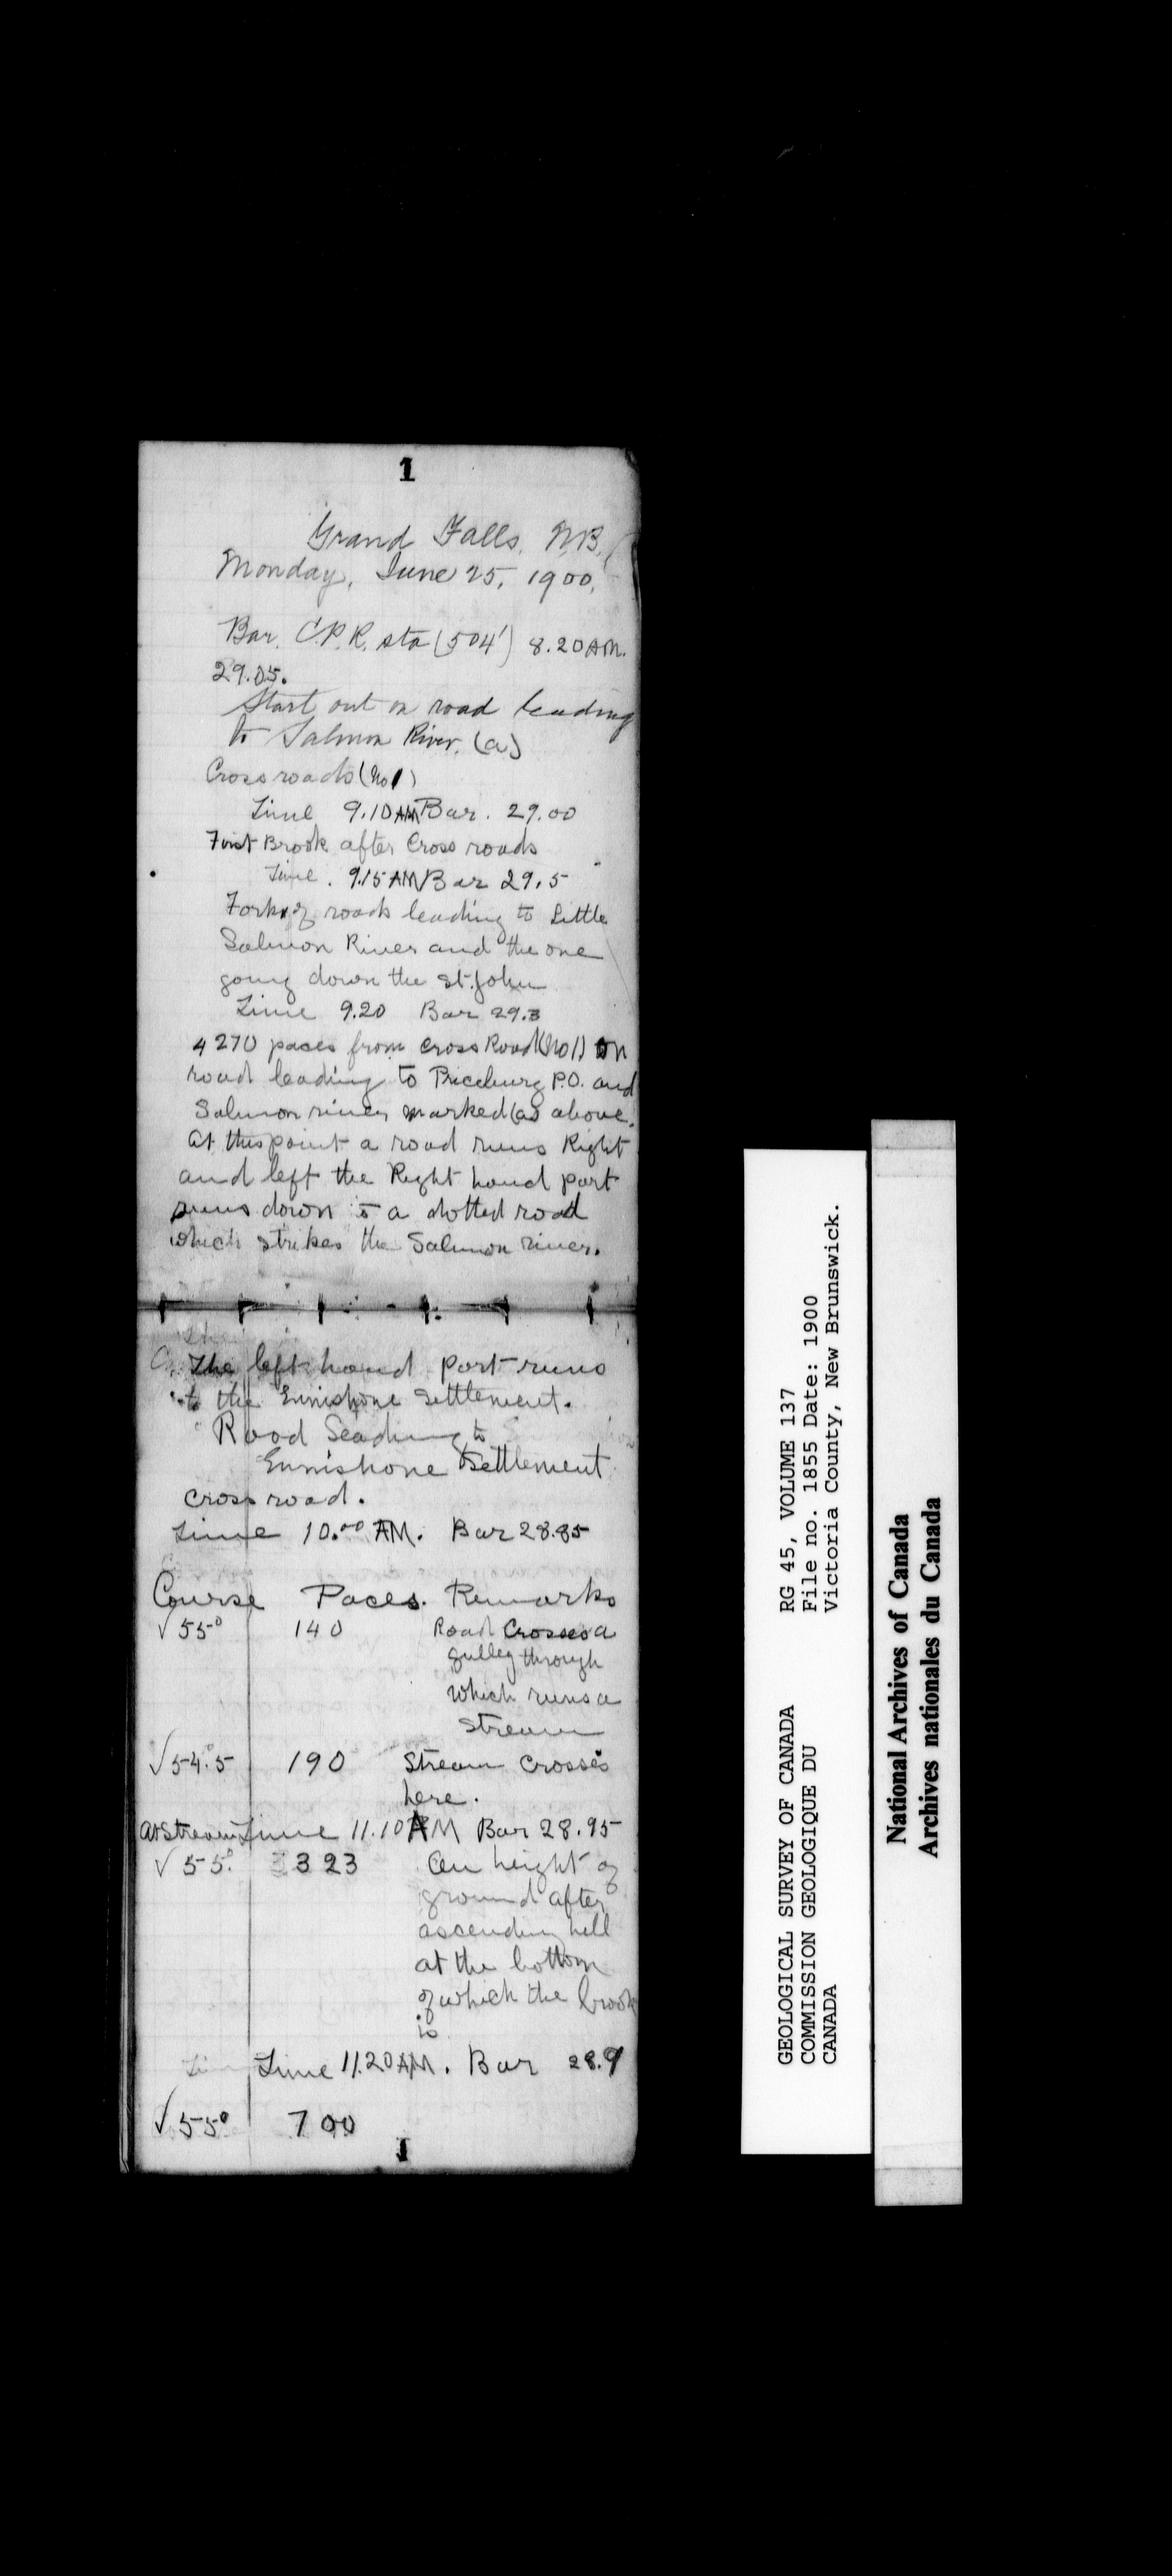 1
Grand Falls, N.B.
Monday, June 25, 1900,
Bar. C.P.R. sta (504') 8.20 AM.
29.05.
Start out on road leading
to Salmon River. (a)
Cross roads (No 1)
Time 9.10 AM Bar. 29.00
First Brook after Cross roads
Time. 9.15 AM Bar 29.5
Forks of roads leading to Little
Salmon River and the one
going down the St. John
Time 9.20 Bar 29.3
4270 paces from cross Road (No 1) on
road leading to Priceburg P.O. and
Salmon river marked (a) above.
At this point a road runs Right
and left the Right hand part
runs down to a dotted road
which strikes the Salmon river.
The left hand part runs
to the Ennishone settlement.
Road Leading to
Ennishone Settlement
cross road.
Time 10.00 AM. Bar 28.85
Course Paces. Remarks
√55° 140 Road Crosses a
gulley through
which runs a
stream
√54.°5 190 Stream crosses
here.
At Stream Time 11.10 AM Bar 28.95
√55.° 323 On height of
ground after
ascending hill
at the bottom
of which the brook
is
Time 11.20 AM. Bar 28.9
√55° 700
1
GEOLOGICAL SURVEY OF CANADA RG 45, VOLUME 137
COMMISSION GEOLOGIQUE DU File no. 1855 Date: 1900
CANADA Victoria County, New Brunswick.
National Archives of Canada
Archives nationales du Canada